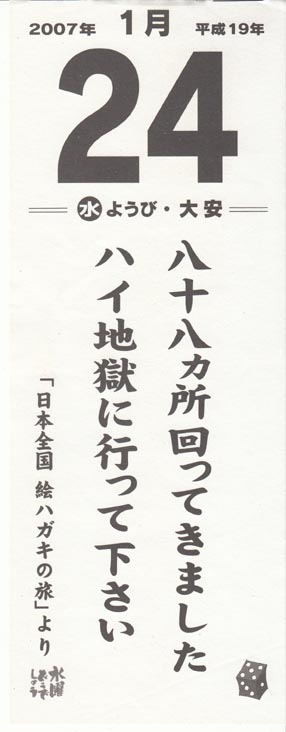 2007年 1月 平成19年
24
水ようび・大安
八十八カ所回ってきました
ハイ地獄に行って下さい
「日本全国 絵ハガキの旅」より
水曜
どうで
しょう